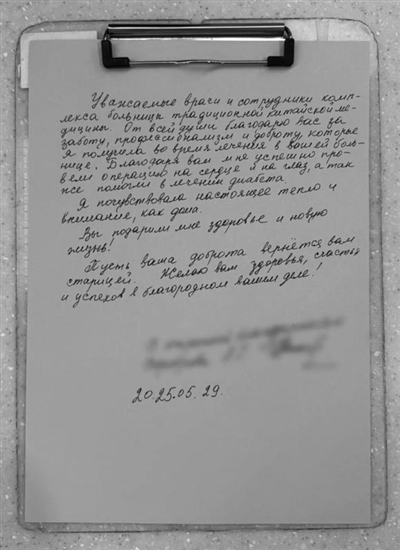 Уважаемые врачи и сотрудники комп-
лекса больницы традиционной китайской ме-
дицины. От всей души благодарю вас за
заботу, профессионализм и доброту, которые
я получила во время лечения в вашей боль-
нице. Благодаря вам мне успешно про-
вели операцию на сердце и на глаз, а так
же помогли в лечении диабета
Я почувствовала настоящее тепло и
внимание, как дома.
Вы подарили мне здоровье и новую
жизнь!
Пусть ваша доброта вернётся вам
старицей. Желаю вам здоровья, счастья
и успехов в благородном вашем деле!
2025.05.29.